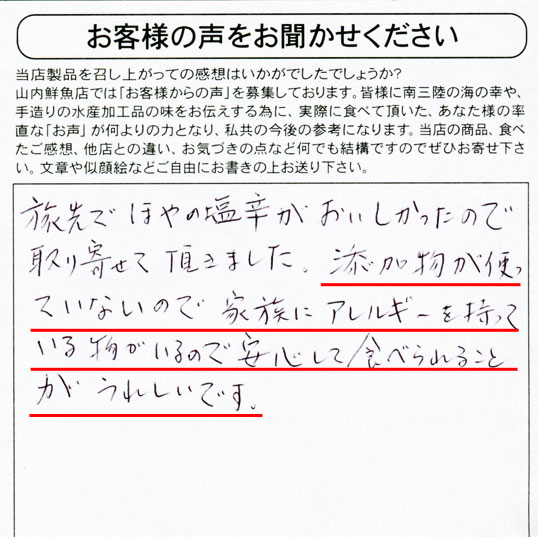 お客様の声をお聞かせください
当店製品を召し上がっての感想はいかがでしたでしょうか?
山内鮮魚店では「お客様からの声」を募集しております。皆様に南三陸の海の幸や、
手造りの水産加工品の味をお伝えする為に、実際に食べて頂いた、あなた様の率
直な「お声」が何よりの力となり、私共の今後の参考になります。当店の商品、食べ
たご感想、他店との違い、お気づきの点など何でも結構ですのでぜひお寄せ下さ
い。文章や似顔絵などご自由にお書きの上お送り下さい。
旅先で ほやの塩辛が おいしかったので
取り寄せて 頂きました。添加物が使っ
ていないので 家族に アレルギーを持って
いる物がいるので安心して食べられること
が うれしいです。